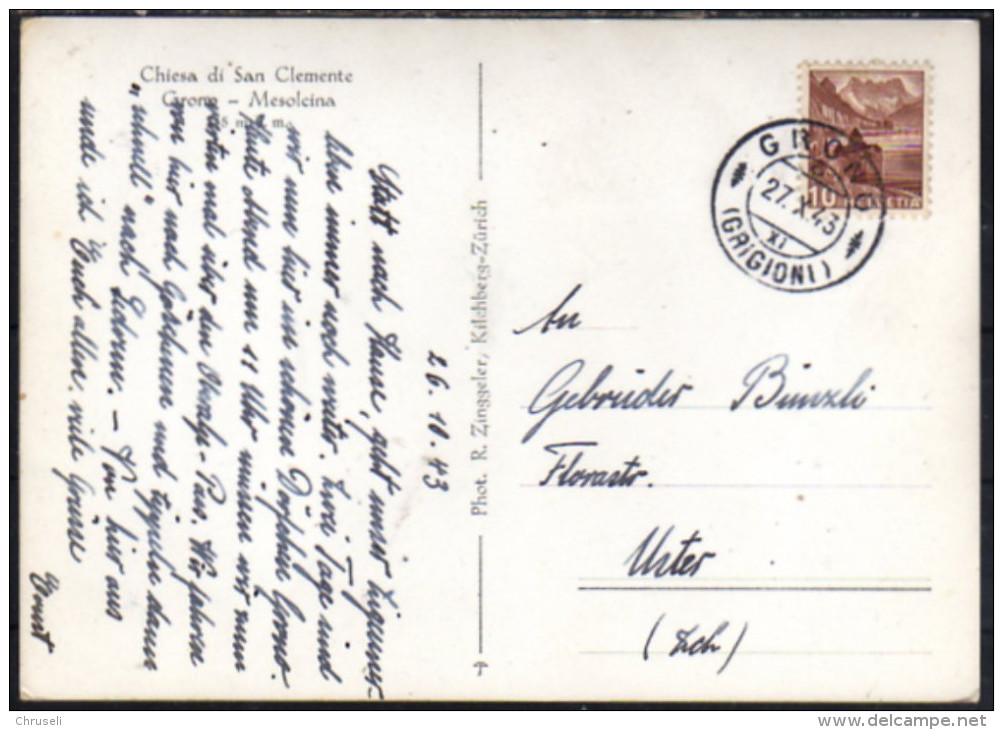 Chiesa di San Clemente
Grono - Mesolcina
m. s. m.
26. 10. 43
Statt nach Hause, geht unser Zigeuner-
leben immer noch weiter. Zwei Tage sind
wir nun hier im schönen Dörfchen Grono.
Heute Abend um 11 Uhr müssen wir zum
x-ten mal über den Oberalp-Pass. Wir fahren
von hier nach Göschenen und tippeln dann
"schnell" nach Sedrun. - Von hier aus
sende ich Euch allen viele Grüsse
Ernst
Phot. R. Zinggeler, Kilchberg-Zürich
10
HELVETIA
GRONO
27.X.43
XI
(GRIGIONI)
An
Gebrüder Bünzli
Florastr.
Uster
(Zch)
Chruseli
www.delcampe.net